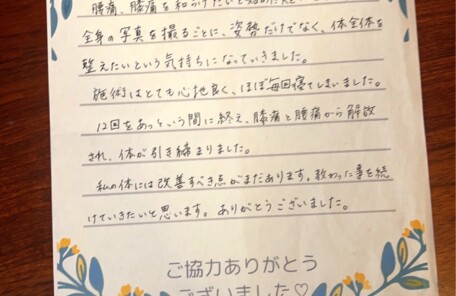 腰痛、膝痛を和らげたいと始めた
全身の写真を撮るごとに、姿勢だけでなく、体全体を
整えたいという気持ちになっていきました。
施術はとても心地良く、ほぼ毎回寝てしまいました。
12回をあっという間に終え、膝痛と腰痛から解放
され、体が引き締まりました。
私の体には改善すべき点がまだあります。教わった事を続
けていきたいと思います。ありがとうございました。
ご協力ありがとう
ございました♡